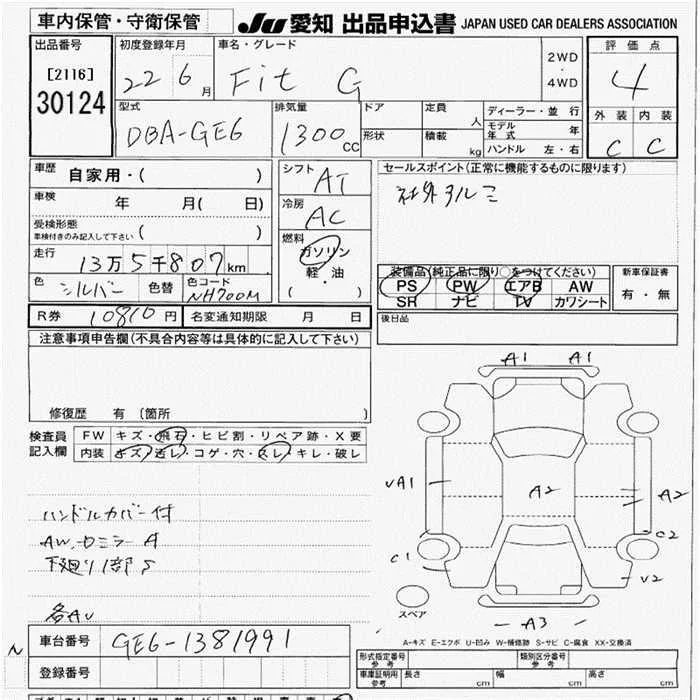 車内保管・守衛保管
JU 愛知 出品申込書 JAPAN USED CAR DEALERS ASSOCIATION
出品番号
[2116]
30124
初度登録年月
22 6月
車名・グレード
Fit G
2WD
・
4WD
評価点
4
外装 内装
C C
型式
DBA-GE6
排気量
1300cc
ドア
形状
定員 人
積載 kg
ディーラー・並行
モデル年式 年
ハンドル 左・右
車歴 自家用・( )
車検 年 月( 日)
受検形態
車検付きのみ記入して下さい ( )
走行 13万5千807km
色 シルバー 色替 色コード NH700M
シフト AT
冷房 AC
燃料
ガソリン
軽・油
( )
セールスポイント(正常に機能するものに限ります)
社外アルミ
装備品(純正品に限り○をつけてください)
PS PW エアB AW
SR ナビ TV カワシート
新車保証書
有・無
R券 10810円 名変通知期限 月 日
後日品
注意事項申告欄(不具合内容等は具体的に記入して下さい)
修復歴 有 (箇所 )
検査員記入欄
FW キズ・飛石・ヒビ割・リペア跡・X要
内装 キズ・汚レ・コゲ・穴・スレ・キレ・破レ
ハンドルカバー付
AW、
下廻り部S
各AU
A1 A1
UA1
A2
A2
C2
C1
U2
A3
スペア
A-キズ E-エクボ U-凹み W-補修跡 S-サビ C-腐食 XX-交換済
車台番号 GE6-1381991
登録番号
形式指定番号
参考
類別区分番号
参考
車庫証明用
参考
長さ cm 幅 cm 高さ cm